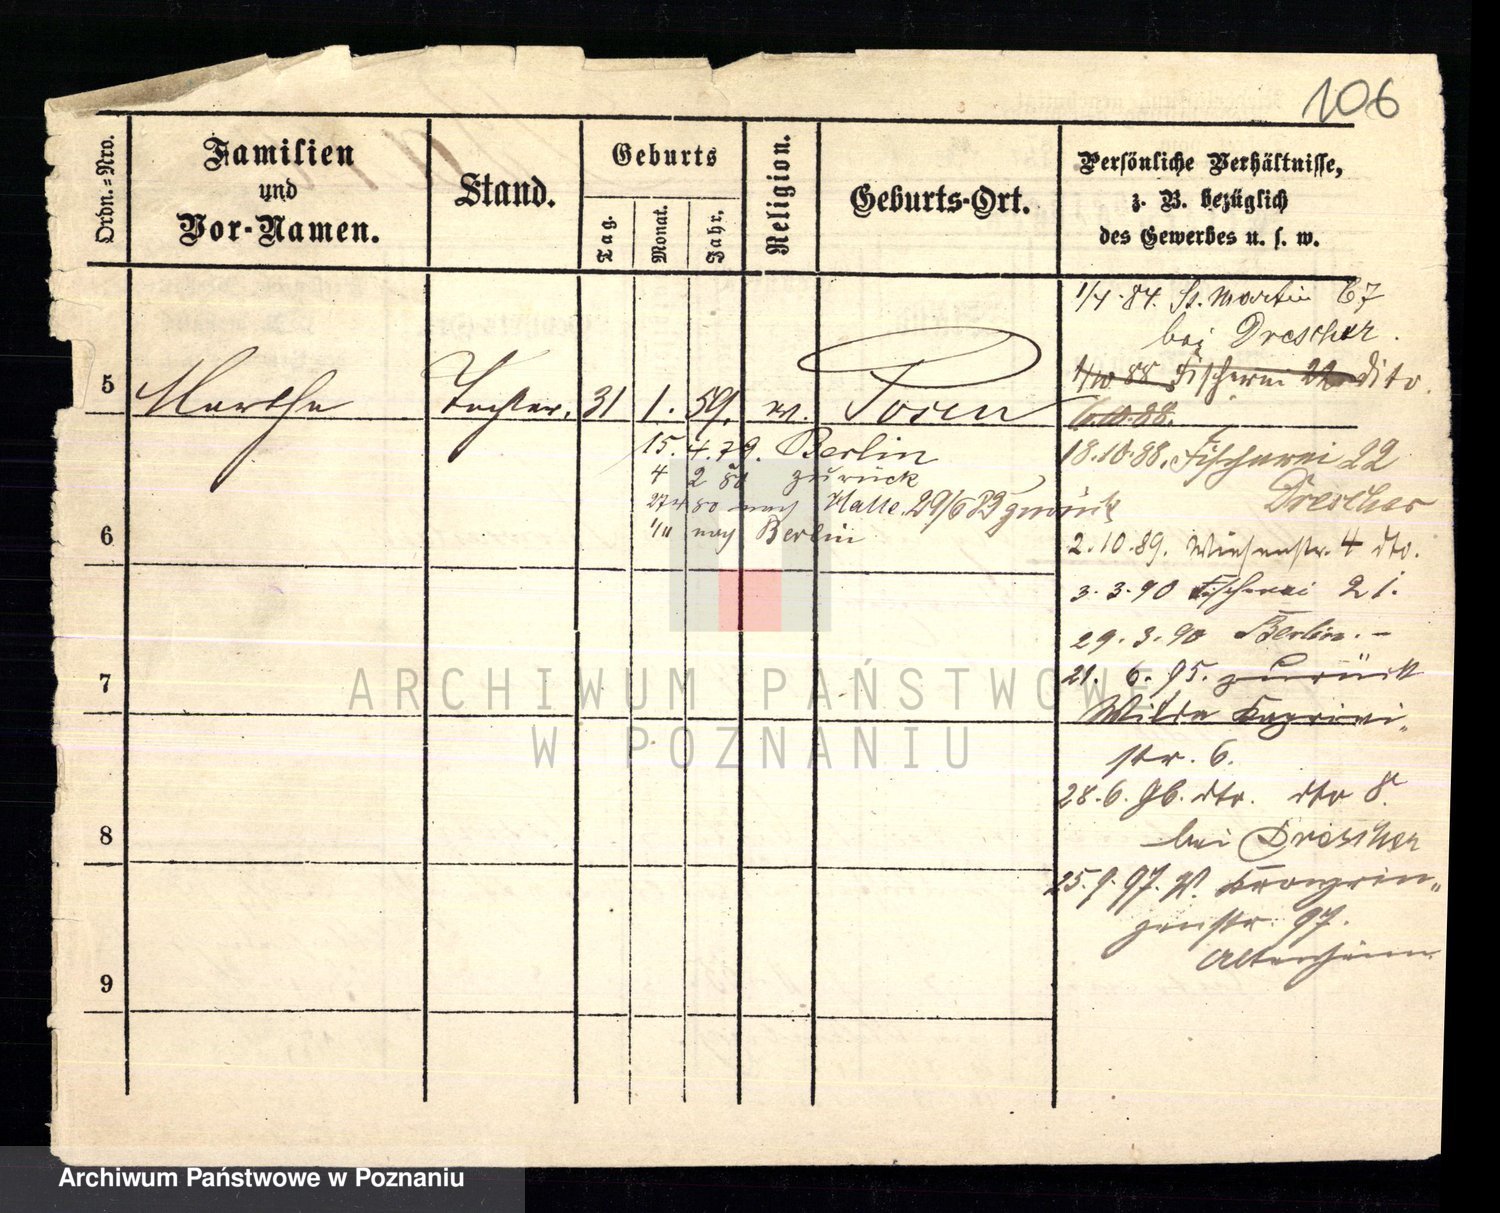 106
Ordn.=Nro.
Familien
und
Vor-Namen.
Stand.
Geburts
Tag.
Monat.
Jahr.
Religion.
Geburts-Ort.
Persönliche Verhältnisse,
z. B. bezüglich
des Gewerbes u. s. w.
5 Martha Tochter. 31 1. 59. ev. Posen
15. 4. 79. Berlin
4 2 80 zurück
27 4 80 nach Halle. 29/6 83 zurück
1/11 nach Berlin
6
7
8
9
1/4. 84. St. Martin 67
bei Drescher.
1/10 88 Fischerei 22 dito.
6.10.88.
18.10.88. Fischerei 22
Drescher
2.10.89. Wiesenstr. 4 dto.
3. 3. 90 Fischerei 21.
29. 3. 90 Berlin. -
21. 6. 95. zurück
Wilda Caprivi-
str. 6.
28. 6. 96. dto. dto 8.
bei Drescher
25. 9. 97. W. Kronprin-
zenstr. 97.
Altersheim
ARCHIWUM PAŃSTWOWE
W POZNANIU
Archiwum Państwowe w Poznaniu